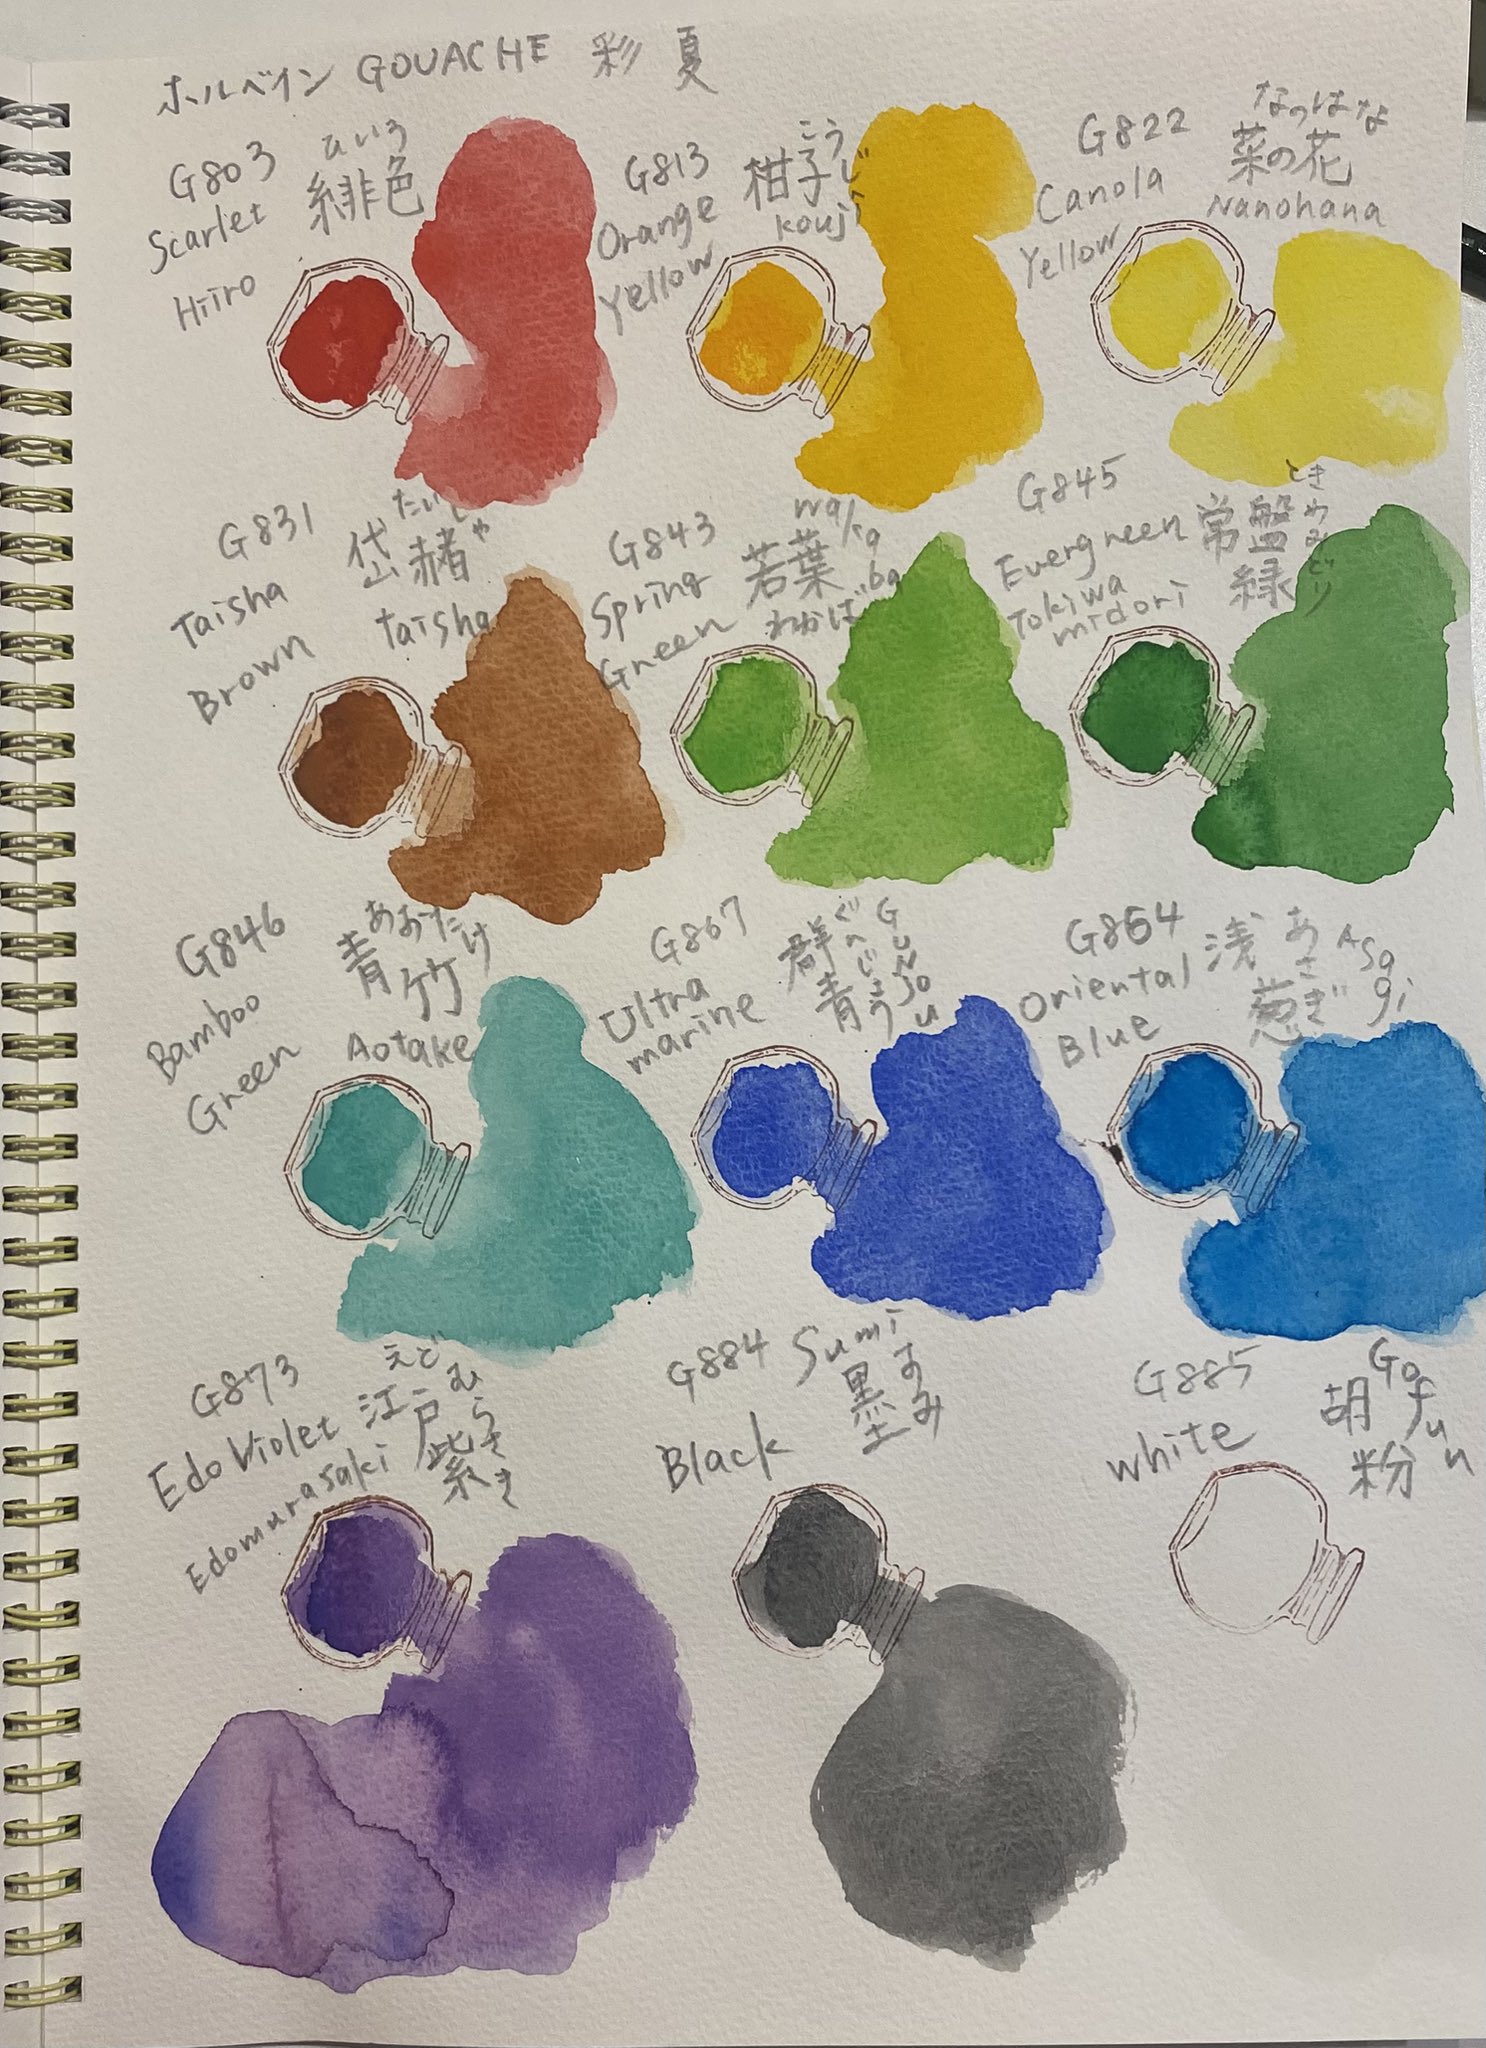 ホルベイン GOUACHE 彩 夏
G803
Scarlet
Hiiro
ひいろ
緋色
G813
Orange
Yellow
こうじ
柑子
Kouji
G822
Canola
Yellow
なのはな
菜の花
Nanohana
G831
Taisha
Brown
たいしゃ
岱赭
taisha
G843
Spring
Green
wakaba
若葉
わかば
G845
Evergreen
Tokiwa
midori
ときわみどり
常盤
緑
G846
Bamboo
Green
あおたけ
青竹
Aotake
G867
Ultra
marine
群青
ぐんじょう
GUNJOU
G864
Oriental
Blue
浅葱
あさぎ
Asagi
G873
Edo Violet
Edomurasaki
えどむらさき
江戸紫
G884
Black
Sumi
墨
すみ
G885
White
胡粉
Gofun